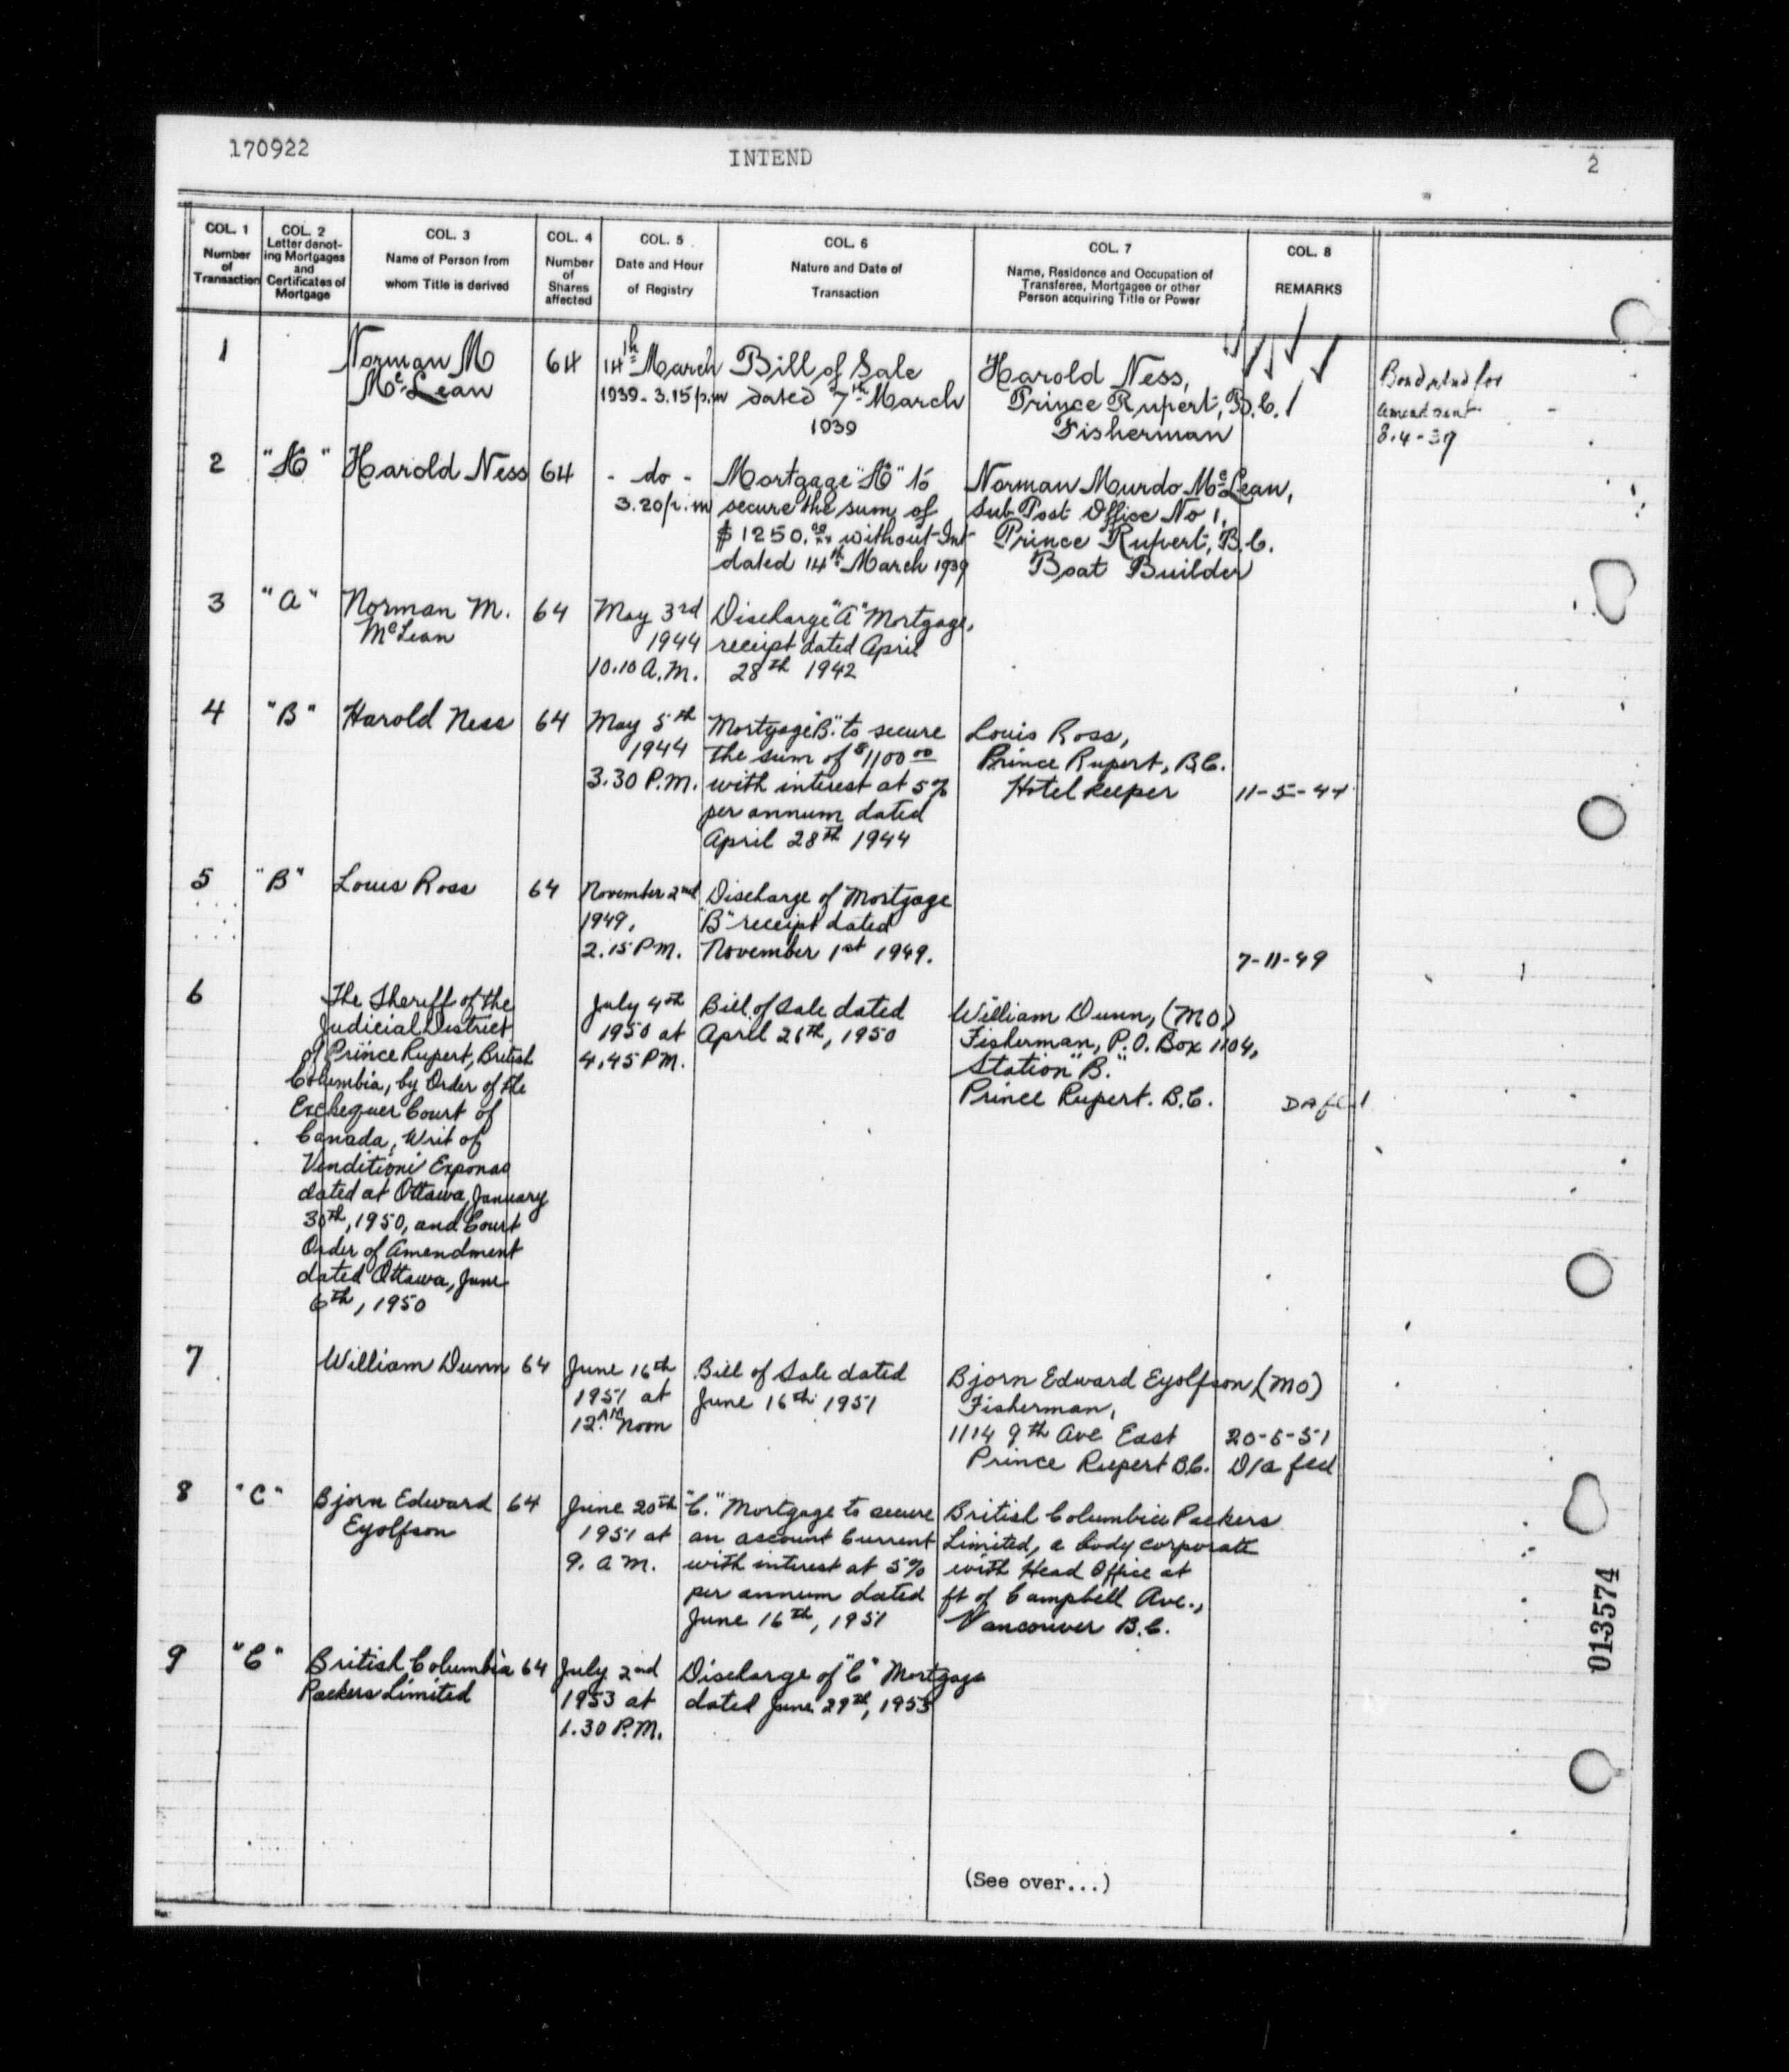 170922
INTEND
2
COL. 1
Number
of
Transaction
COL. 2
Letter denot-
ing Mortgages
and
Certificates of
Mortgage
COL. 3
Name of Person from
whom Title is derived
COL. 4
Number
of
Shares
affected
COL. 5
Date and Hour
of Registry
COL. 6
Nature and Date of
Transaction
COL. 7
Name, Residence and Occupation of
Transferee, Mortgagee or other
Person acquiring Title or Power
COL. 8
REMARKS
1
Norman M
McLean
64
14th March
1939. 3.15 p.m
Bill of Sale
dated 7th March
1939
Harold Ness,
Prince Rupert, B.C.
Fisherman
for
amendment
8.4-39
2
"A"
Harold Ness
64
- do -
3.20 p.m
Mortgage "A" to
secure the sum of
$1250.00 without Int
dated 14th March 1939
Norman Murdo McLean,
Sub Post Office No 1,
Prince Rupert, B.C.
Boat Builder
3
"A"
Norman M.
McLean
64
May 3rd
1944
10.10 A.M.
Discharge "A" Mortgage,
receipt dated April
28th 1942
4
"B"
Harold Ness
64
May 5th
1944
3.30 P.M.
Mortgage "B" to secure
the sum of $1100 00
with interest at 5%
per annum dated
April 28th 1944
Louis Ross,
Prince Rupert, B.C.
Hotel keeper
11-5-44
5
"B"
Louis Ross
64
November 2nd
1949,
2.15 P.M.
Discharge of Mortgage
"B" receipt dated
November 1st 1949.
7-11-49
6
The Sheriff of the
Judicial District
of Prince Rupert, British
Columbia, by Order of the
Exchequer Court of
Canada, Writ of
Venditioni Exponas
dated at Ottawa, January
30th, 1950, and Court
Order of Amendment
dated Ottawa, June
6th, 1950
July 4th
1950 at
4.45 P.M.
Bill of Sale dated
April 26th, 1950
William Dunn, (MO)
Fisherman, P.O. Box 1104,
Station "B."
Prince Rupert. B.C.
7
William Dunn
64
June 16th
1951 at
12 AM Noon
Bill of Sale dated
June 16th 1951
Bjorn Edward Eyolfson, (MO)
Fisherman,
1114 9th Ave East
Prince Rupert B.C.
20-6-51
D/a fld
8
"C"
Bjorn Edward
Eyolfson
64
June 20th
1951 at
9. A M.
"C." Mortgage to secure
an account Current
with interest at 5%
per annum dated
June 16th, 1951
British Columbia Packers
Limited, a body corporate
with Head Office at
ft of Campbell Ave.,
Vancouver B.C.
9
"C"
British Columbia
Packers Limited
64
July 2nd
1953 at
1.30 P.M.
Discharge of "C" Mortgage
dated June 29th, 1953
(See over...)
013574